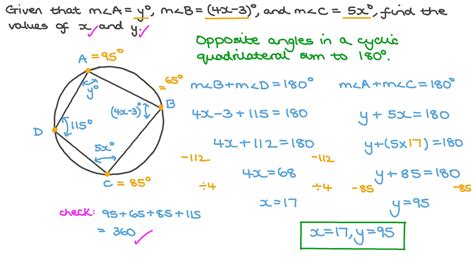 Given that m∠A = y°, m∠B = (4x-3)°, and m∠C = 5x°, find the
values of x and y.
Opposite angles in a cyclic
quadrilateral sum to 180°.
A = 95°
y°
= 65°
B
(4x-3)°
D
115°
5x°
C = 85°
check: 95+65+85+115
= 360
m∠B + m∠D = 180°
4x-3 + 115 = 180
4x + 112 = 180
-112 -112
4x = 68
÷4 ÷4
x = 17
m∠A + m∠C = 180°
y + 5x = 180
y + (5x17) = 180
y + 85 = 180
-85 -85
y = 95
x = 17, y = 95